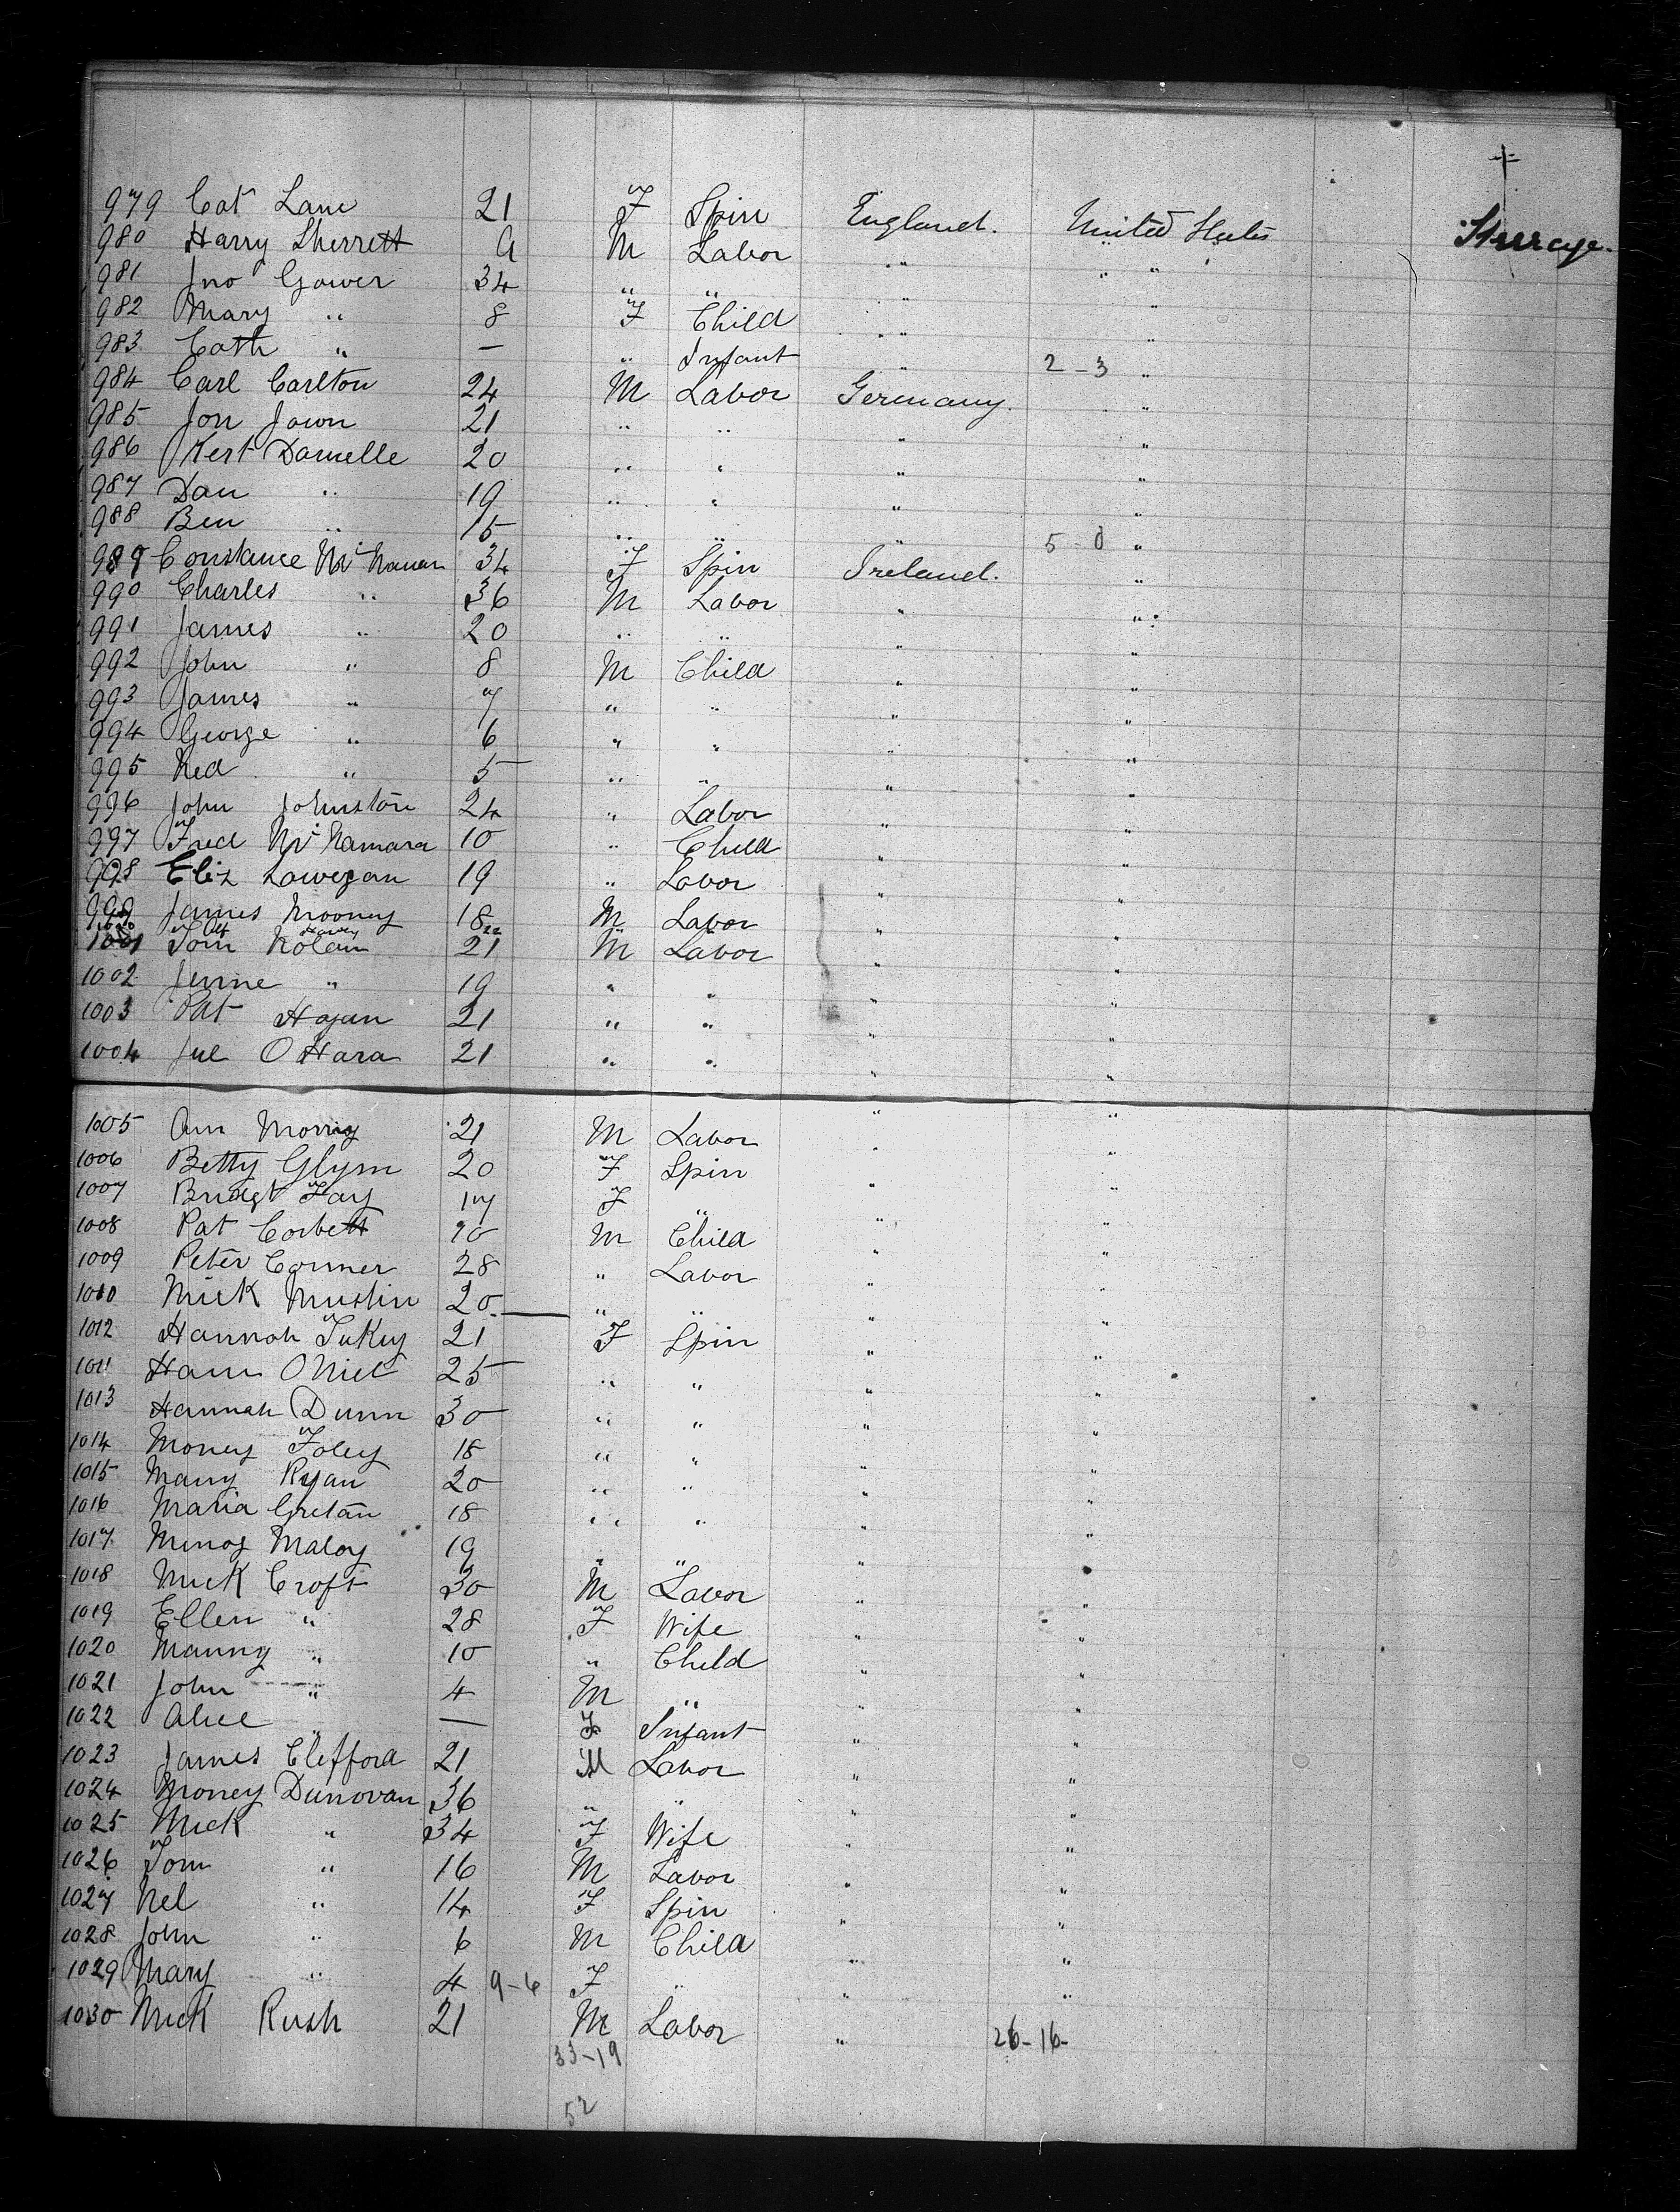 979 Cat Lane 21 F Spin England. United States Steerage.
980 Harry Sherrett a M Labor " "
981 Jno Gower 34 " " " "
982 Mary " 8 F Child " "
983 Cath " — " Infant " 2-3 "
984 Carl Carlton 24 M Labor Germany. "
985 Jon Jown 21 " " " "
986 Kert Darnelle 20 " " " "
987 Dan " 19 " " " "
988 Ben " 15 " " " 5-0 "
989 Constance 34 F Spin Ireland. "
990 Charles " 36 M Labor " "
991 James " 20 " " " "
992 John " 8 M Child " "
993 James " 7 " " " "
994 George " 6 " " " "
995 Ned " 5 " " " "
996 John Johnston 24 " Labor " "
997 Fred McNamara 10 " Child " "
998 Eliz 19 " Labor " "
999 James Mooney 18 M Labor " "
1001 Tom Nolan 21 M Labor " "
1002 Jenne " 19 " " " "
1003 Pat Hogan 21 " " " "
1004 Jul O Hara 21 " " " "
1005 Ann 21 M Labor " "
1006 Betty Glynn 20 F Spin " "
1007 Bridgt Fay 17 F " " "
1008 Pat Corbett 10 M Child " "
1009 Peter Conner 28 " Labor " "
1010 Mick Mustin 20 " " " "
1012 Hannah Tukey 21 F Spin " "
1011 Hann ONiel 25 " " " "
1013 Hannah Dunn 30 " " " "
1014 Money Foley 18 " " " "
1015 Many Ryan 20 " " " "
1016 Maria Gretan 18 " " " "
1017 Maloy 19 " " " "
1018 Mick Croft 30 M Labor " "
1019 Ellen " 28 F Wife " "
1020 Manny " 10 " Child " "
1021 John " 4 M " " "
1022 Alice " — F Infant " "
1023 James Clifford 21 M Labor " "
1024 Money Dunovan 36 " " " "
1025 Mick " 34 F Wife " "
1026 Tom " 16 M Labor " "
1027 Nel " 14 F Spin " "
1028 John " 6 M Child " "
1029 Mary " 4 9-6 F " " "
1030 Mick Rush 21 M Labor " 26-16-
33-19
52